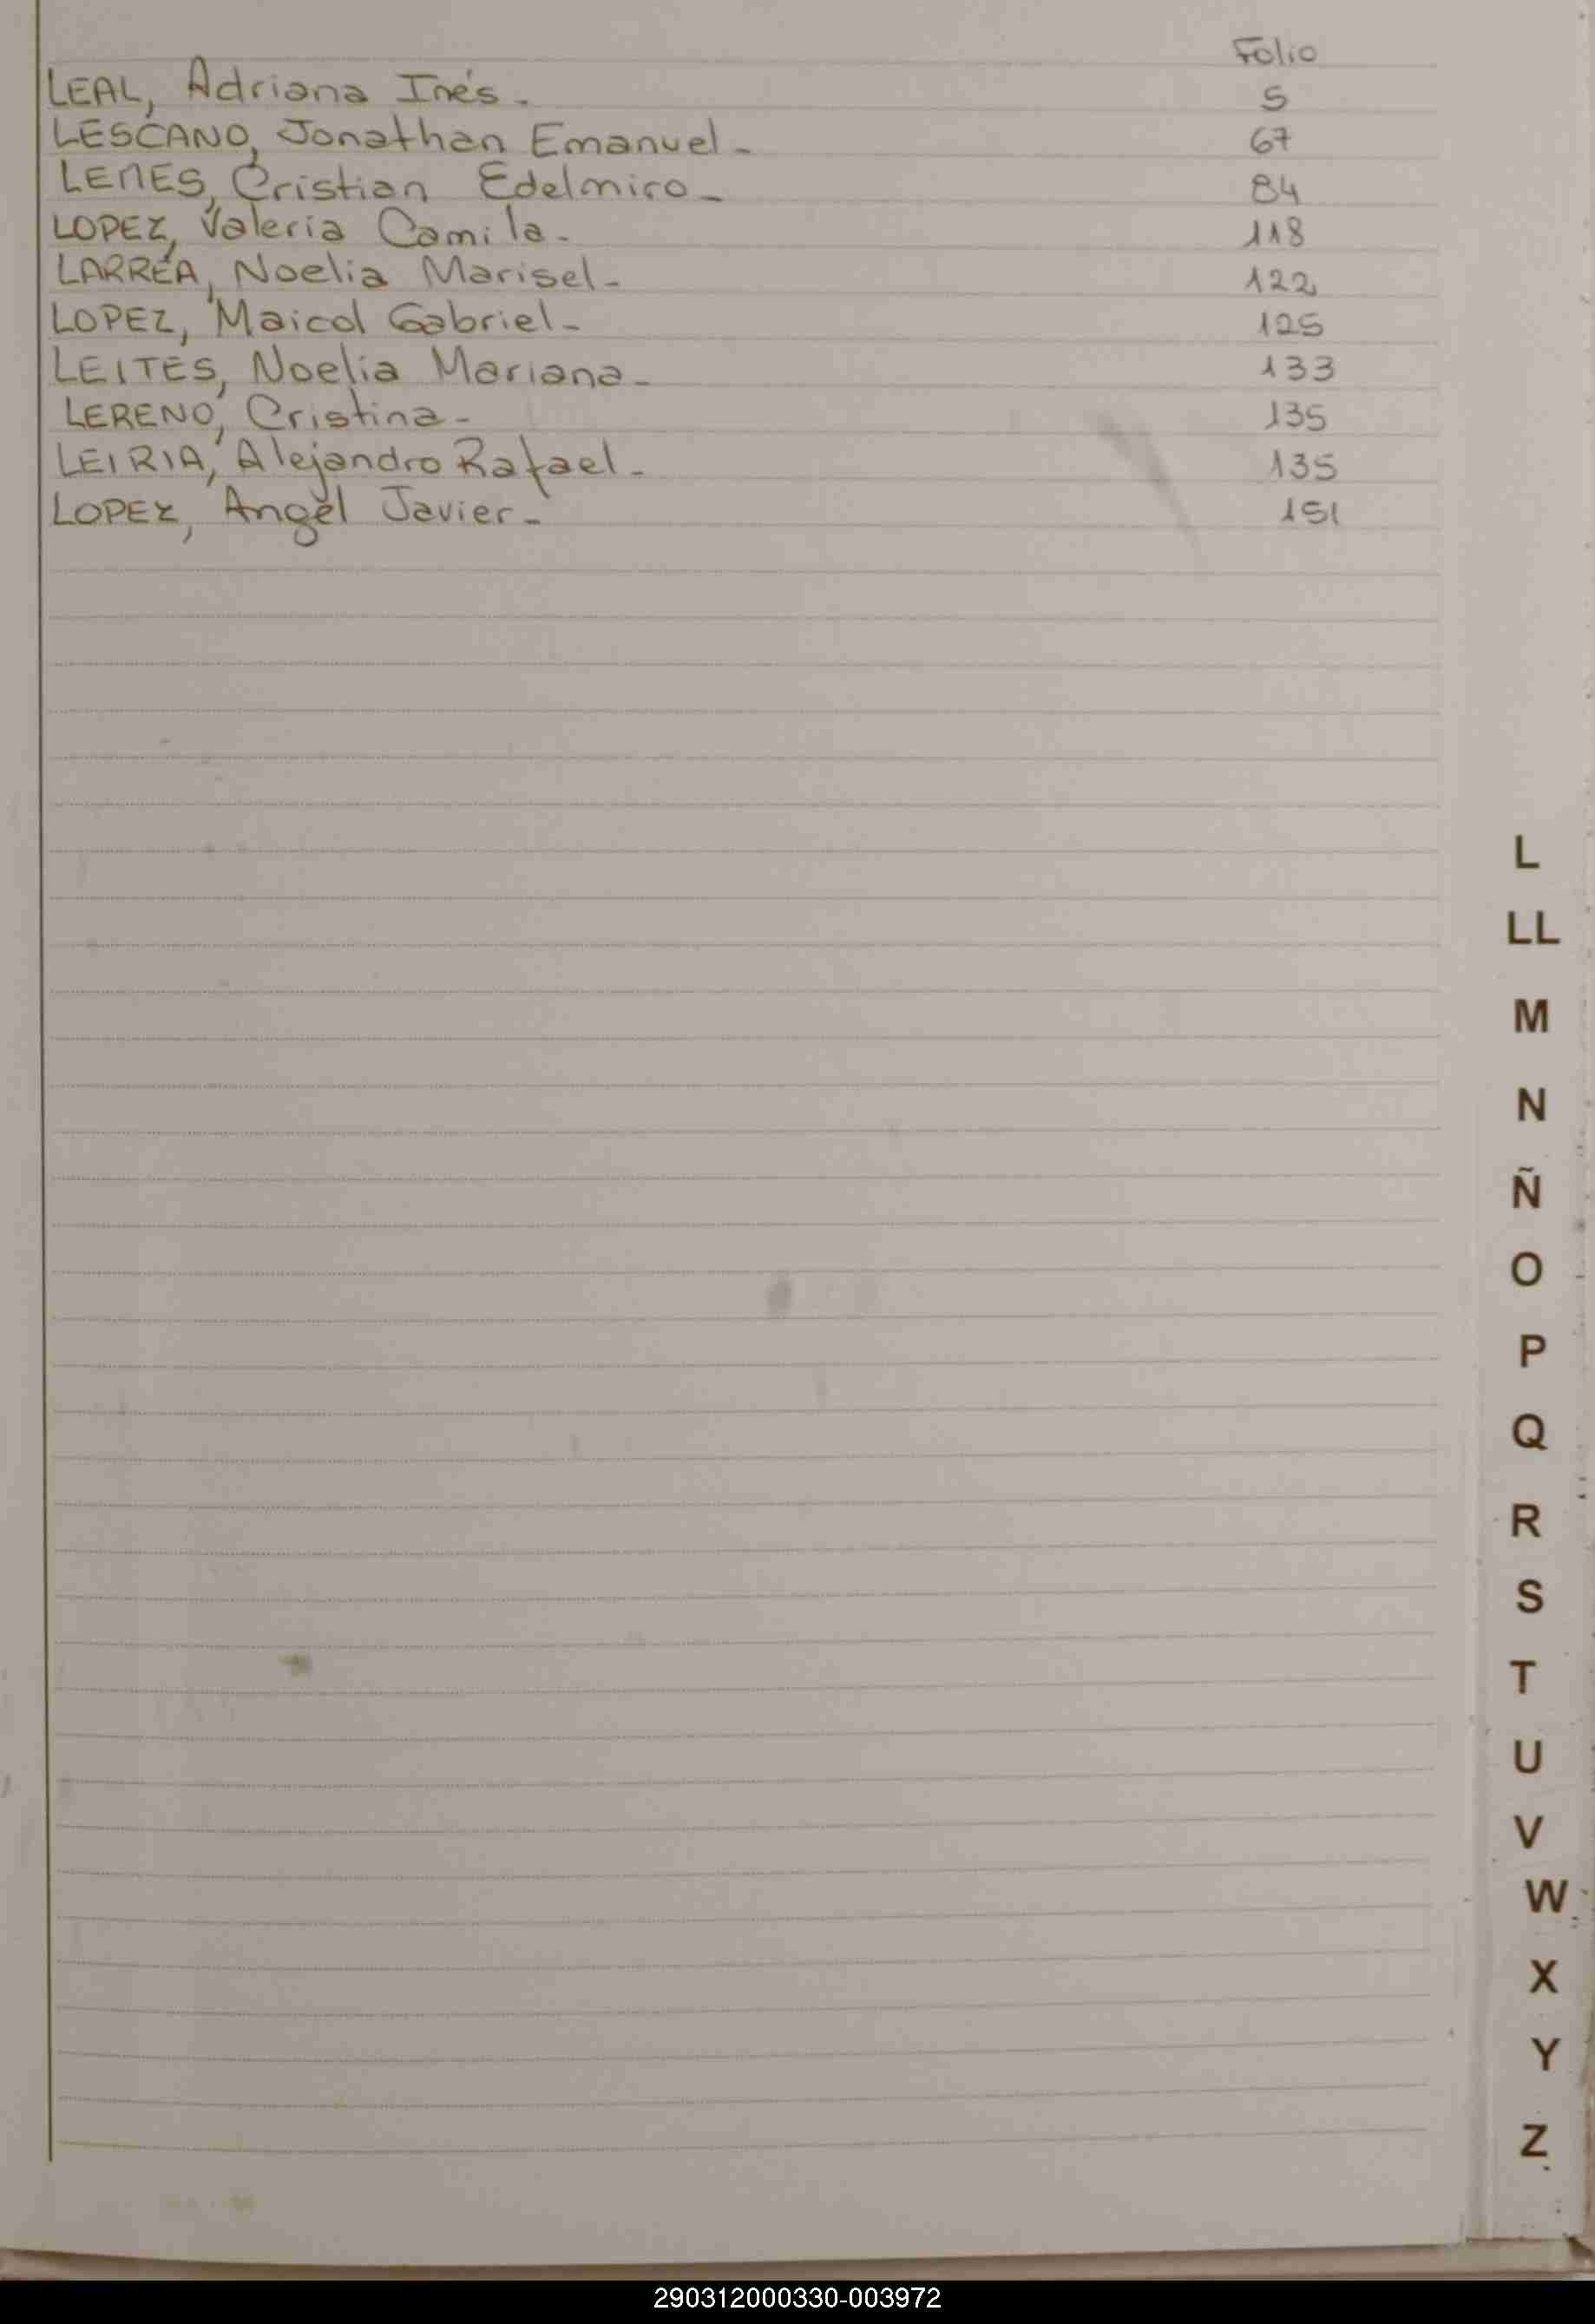 Folio
LEAL, Adriana Inés. 5
LESCANO, Jonathan Emanuel - 67
LEMES, Cristian Edelmiro - 84
LOPEZ, Valeria Camila. 118
LARREA, Noelia Marisel - 122
LOPEZ, Maicol Gabriel - 125
LEITES, Noelia Mariana - 133
LERENO, Cristina - 135
LEIRIA, Alejandro Rafael - 135
LOPEZ, Angel Javier - 151
L
LL
M
N
Ñ
O
P
Q
R
S
T
U
V
W
X
Y
Z
290312000330-003972